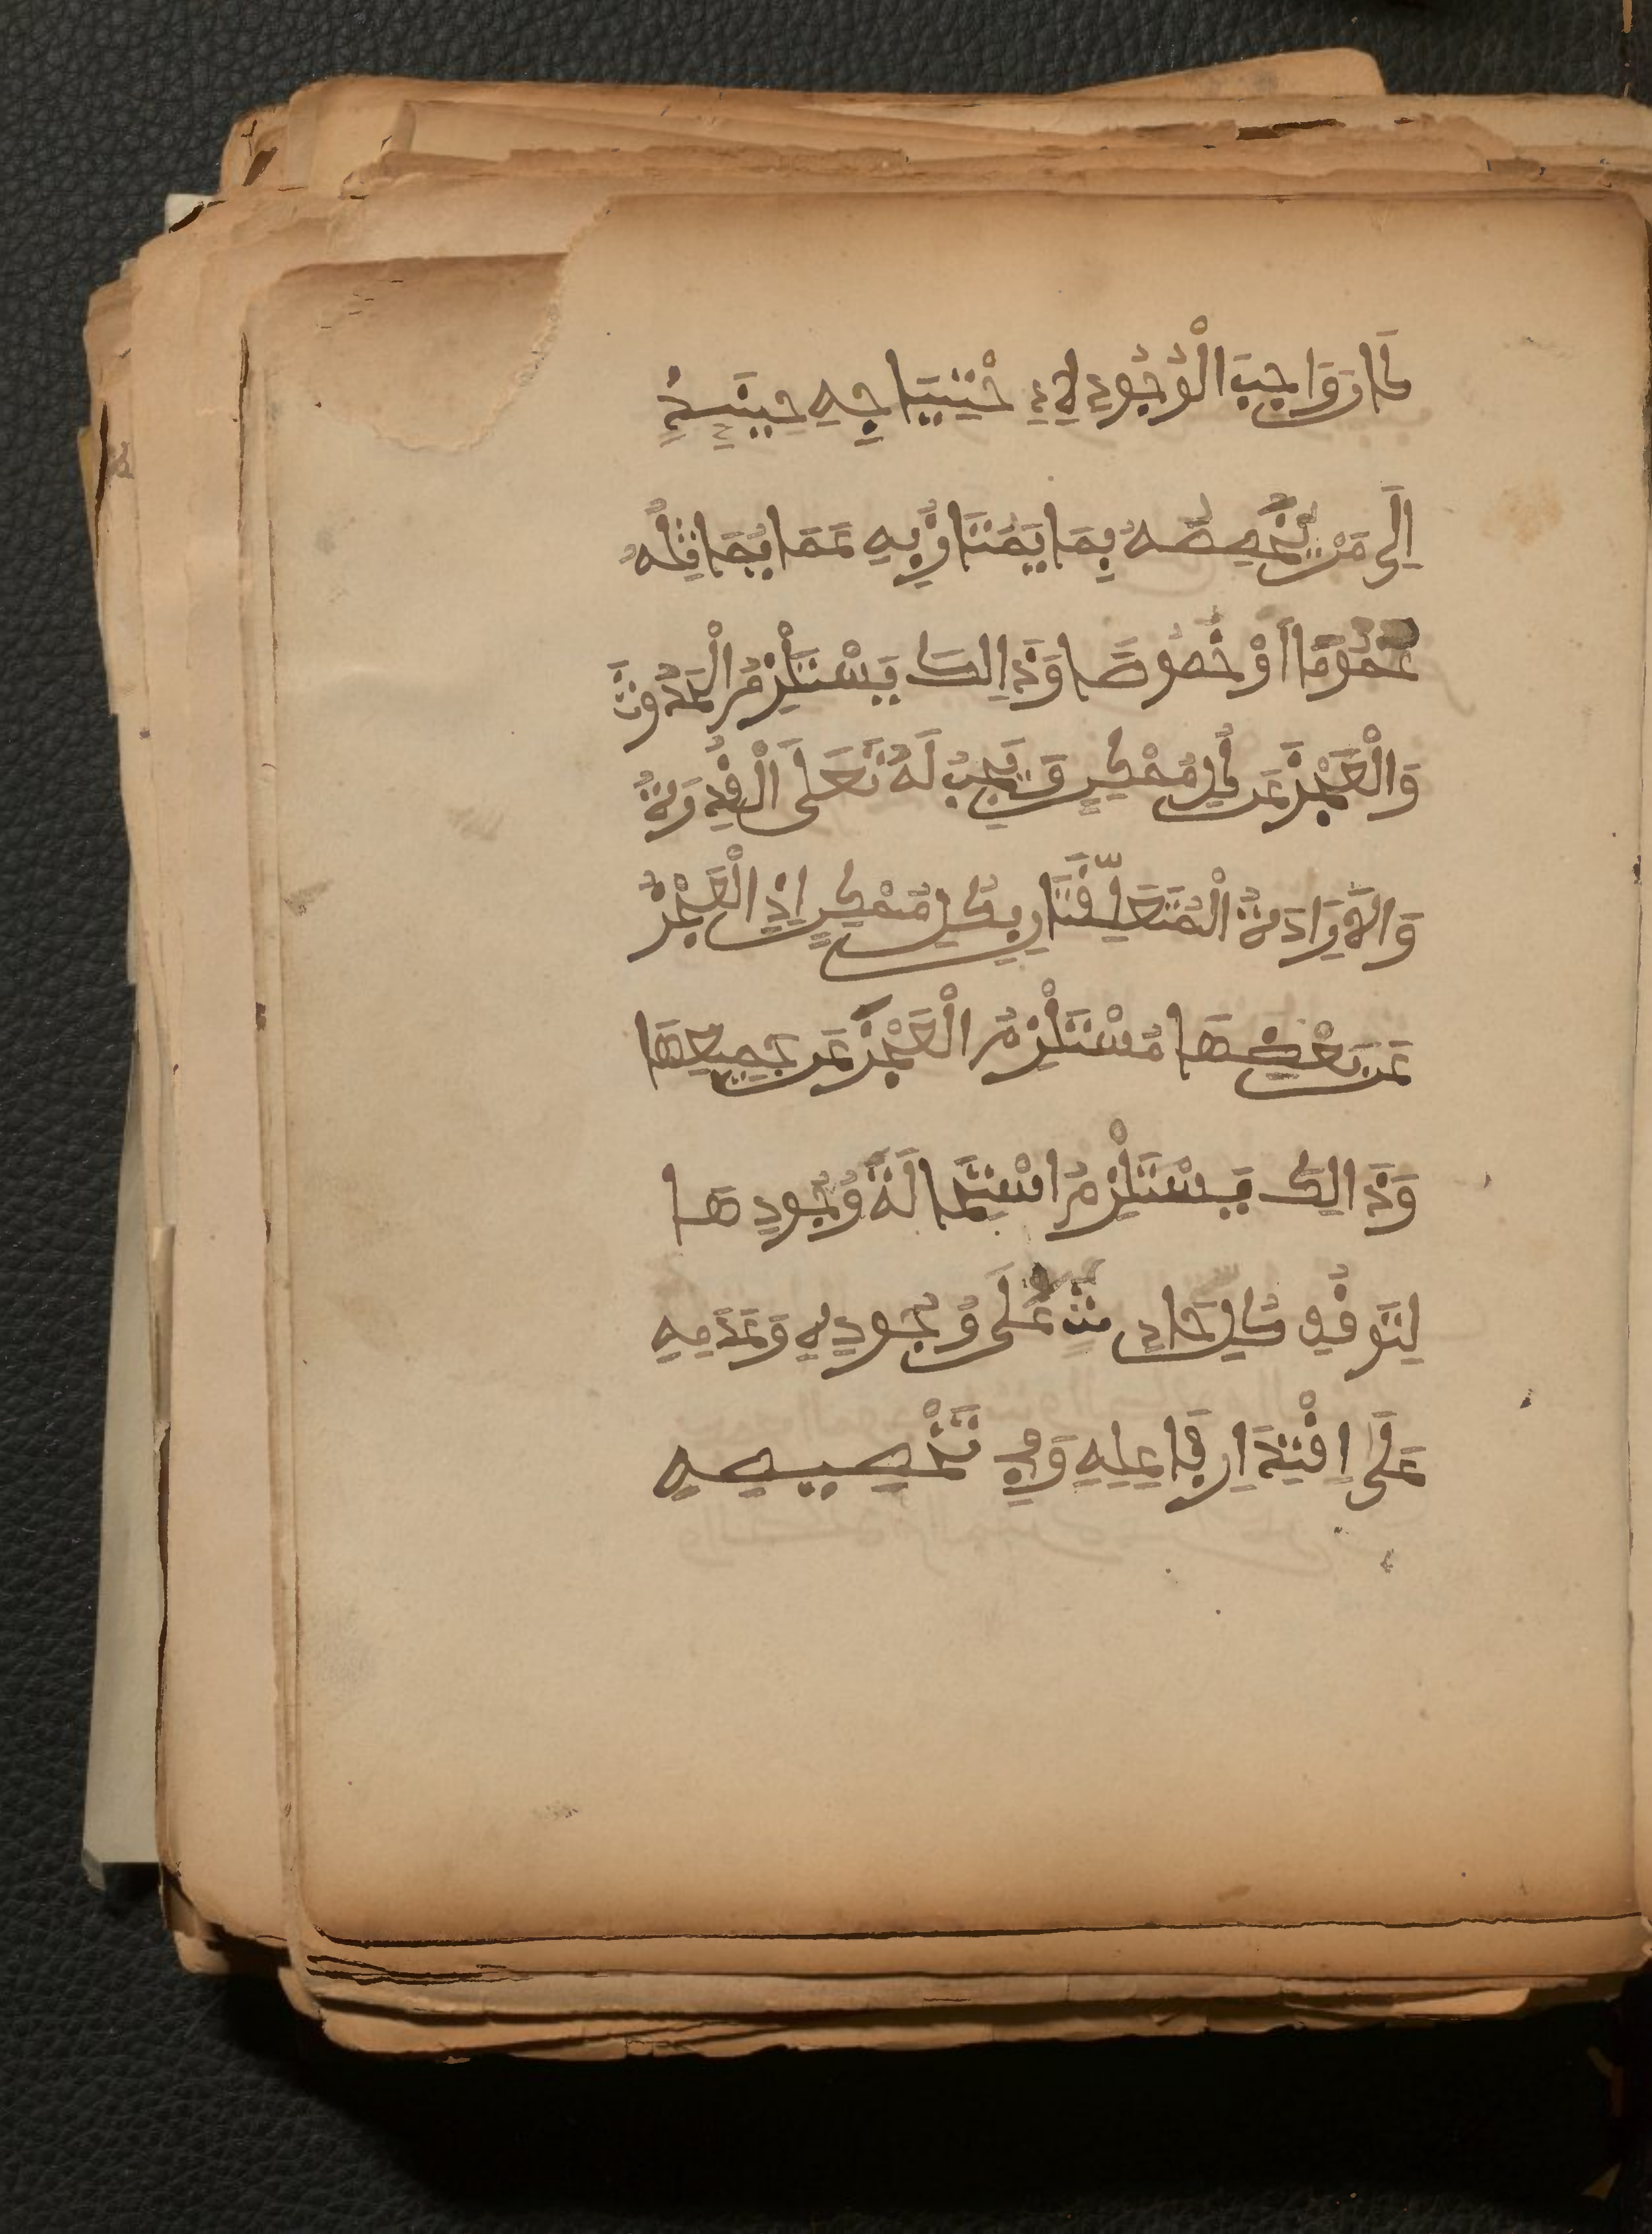 كَانَ وَاجِبَ الْوُجُودِ لِاِحْتِيَاجِهِ حِينَئِذٍ
اِلَى مَنْ يُّخَصِّصُهُ بِمَا يَمْتَازُ بِهِ عَمَّا يُمَاثِلُهُ
عُمُومًا اَوْ خُصُوصًا وَذَالِكَ يَسْتَلْزِمُ الْحُدُوثَ
وَالْعَجْزَ عَن كُلِّ مُمْكِنٍ وَيَجِبُ لَهُ تَعَلَى اَلْقُدْرَةُ
وَالْاِرَادَةُ الْمُتَعَلِّقَتَانِ بِكُلِّ مُمْكِنٍ اِذِ الْعَجْزُ
عَن بَعْضِهَا مُسْتَلْزِمُ الْعَجْزَ عَن جَمِيعِهَا
وَذَالِكَ يَسْتَلْزِمُ اسْتِحَالَةَ وُجُودِهَا
لِتَوَقُّفِ كُلِّ حَادِثٍ عَلَى وُجُودِهِ وَعَدَمِهِ
عَلَى اِفْتِقَارِ فَاعِلِهِ وَ تَخْصِيصِهِ